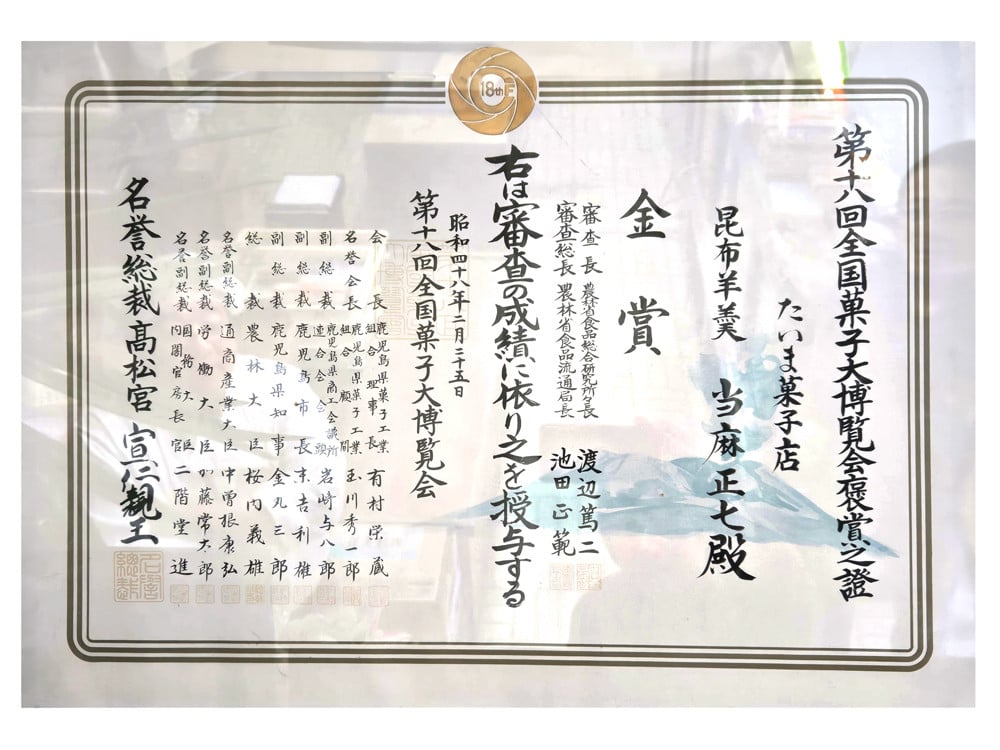 18th F
第十八回全国菓子大博覧会褒賞之證
たいま菓子店
昆布羊羹 当麻正七殿
金賞
審査長 農林省食品総合研究所長 渡辺篤二
審査総長 農林省食品流通局長 池田正範
右は審査の成績に依り之を授与する
昭和四十八年二月二十五日
第十八回全国菓子大博覧会
会長 鹿児島県菓子工業組合理事長 有村栄蔵
名誉会長 鹿児島県菓子工業組合顧問 玉川秀一郎
副総裁 鹿児島県商工会議所連合会会頭 岩崎与八郎
副総裁 鹿児島市長 末吉利雄
副総裁 鹿児島県知事 金丸三郎
総裁 農林大臣 桜内義雄
名誉副総裁 通商産業大臣 中曽根康弘
名誉副総裁 労働大臣 加藤常太郎
名誉副総裁 国務大臣内閣官房長官 二階堂進
名誉総裁 高松宮 宣仁親王